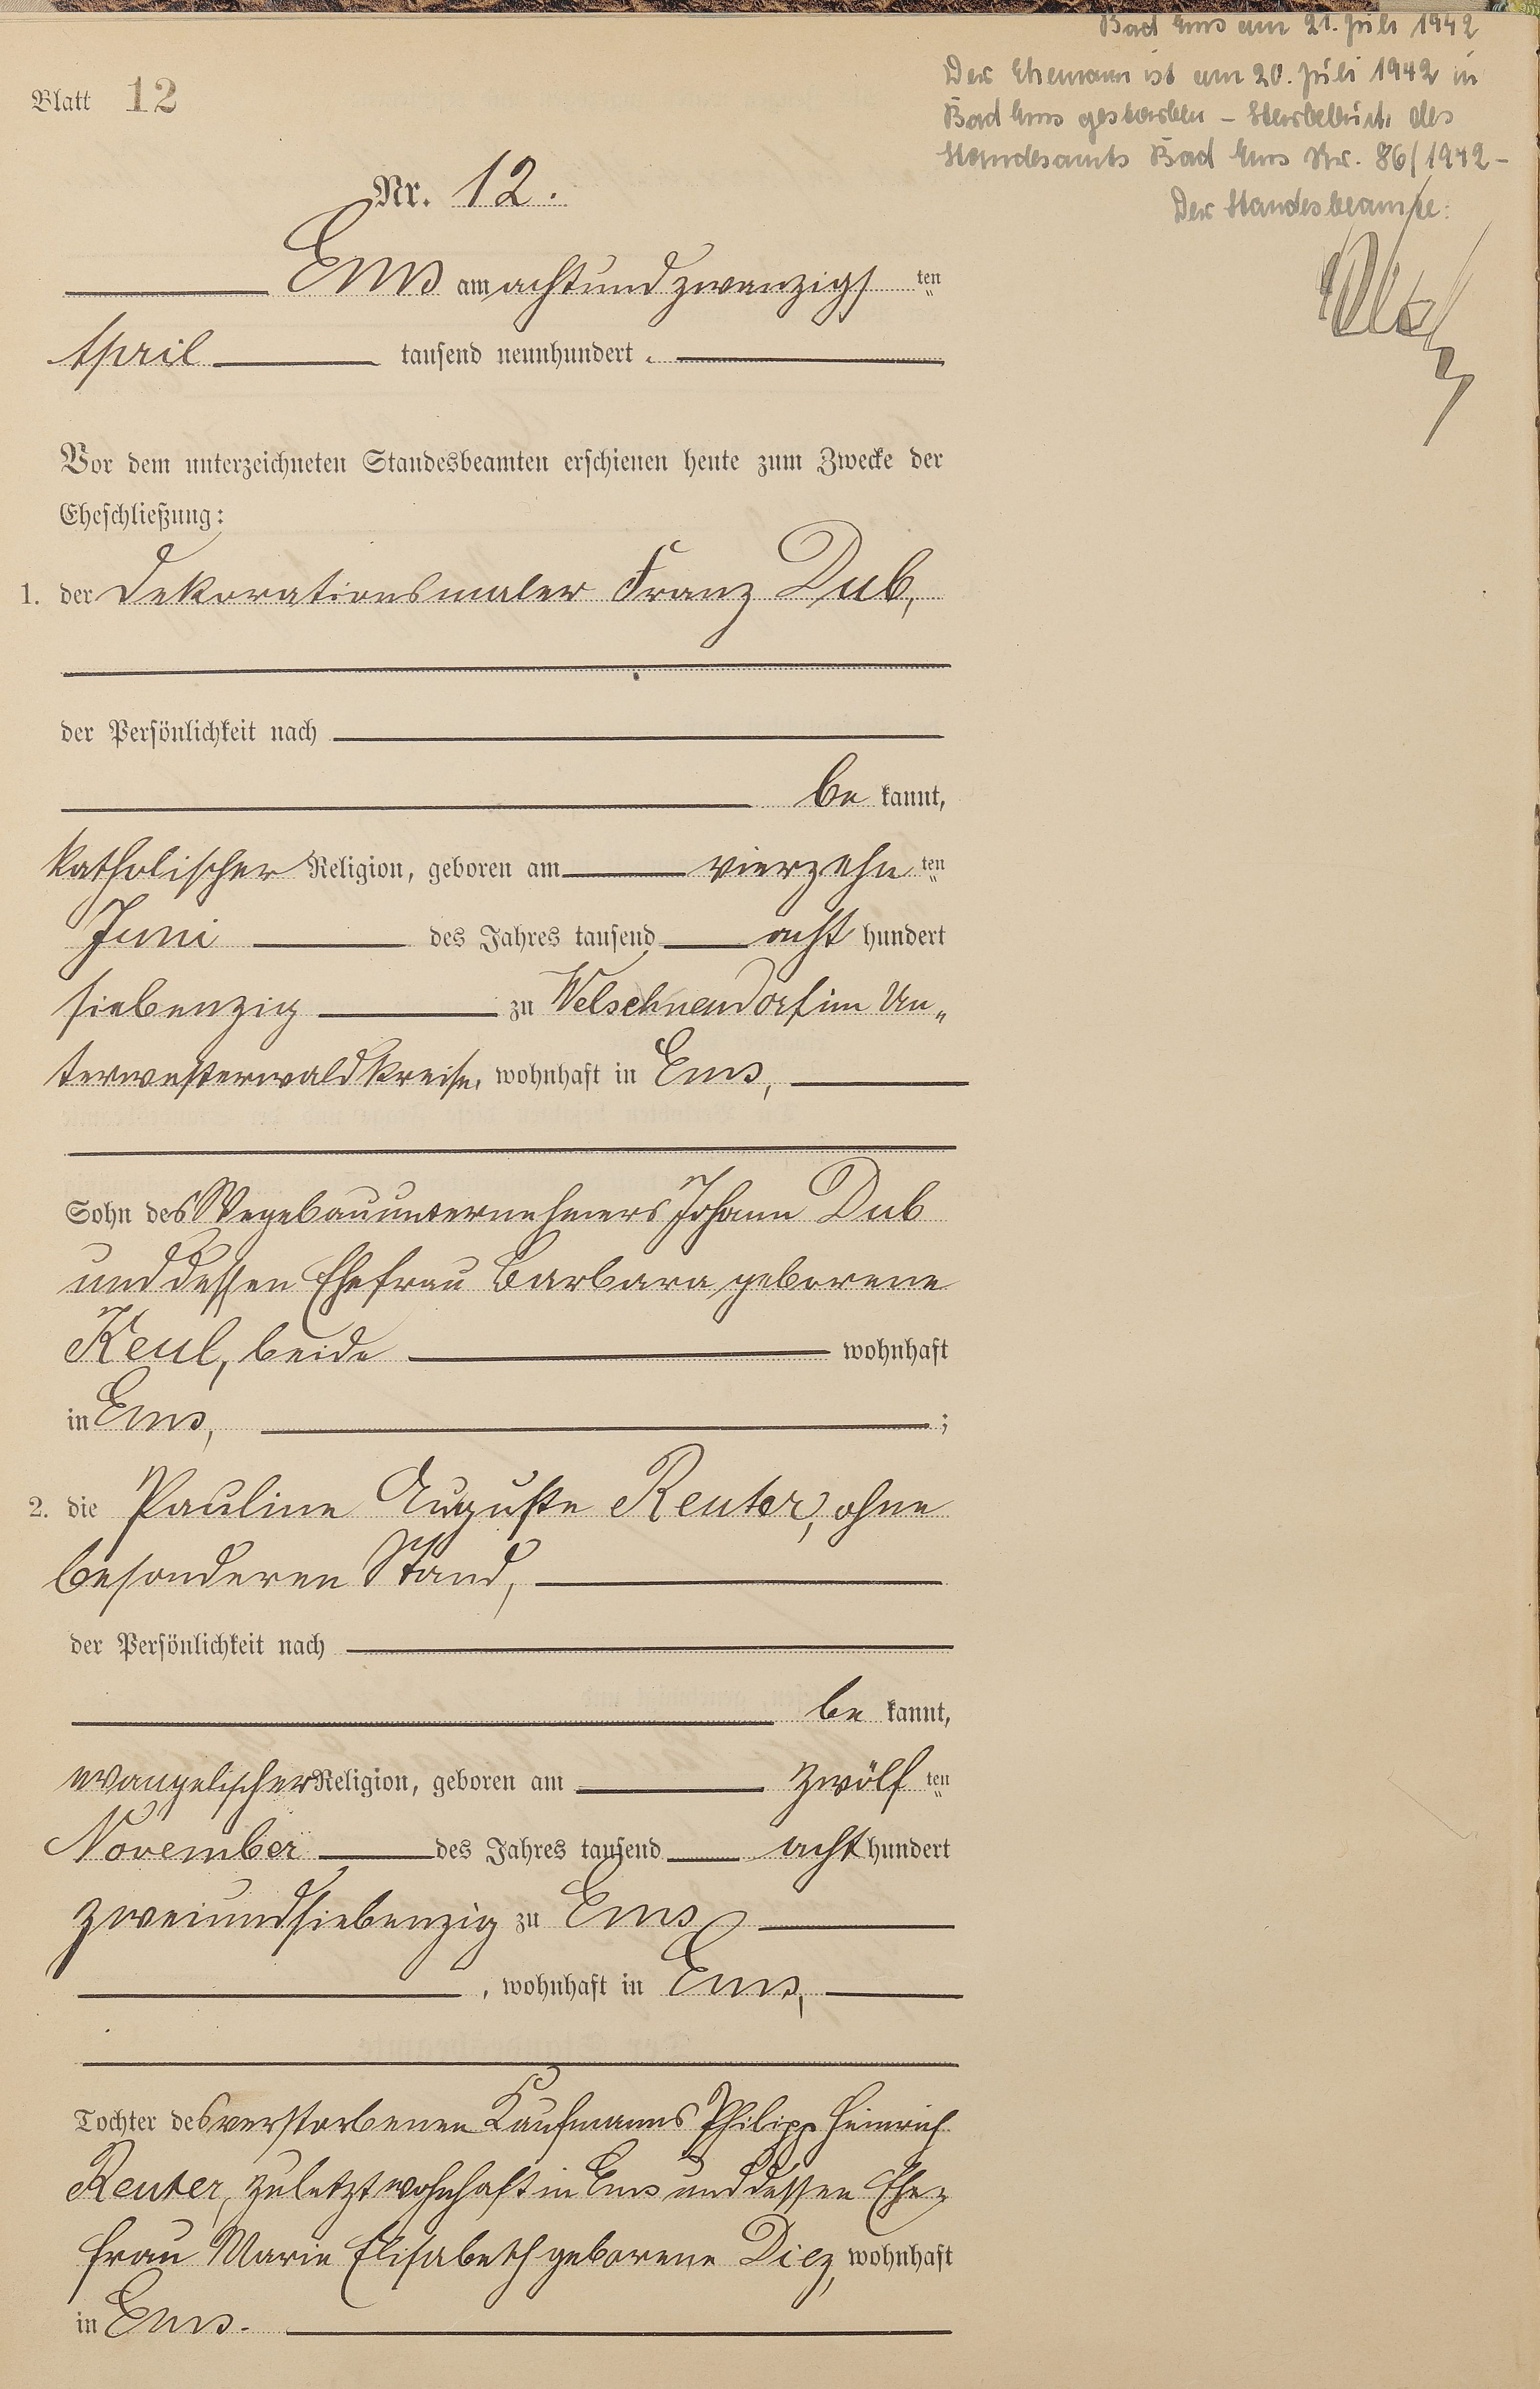 Bad Ems am 21. Juli 1942
Der Ehemann ist am 20. Juli 1942 in
Bad Ems gestorben – Sterbebuch des
Standesamts Bad Ems Nr. 86/1942 –
Der Standesbeamte:
Blatt 12
Nr. 12.
Ems am achtundzwanzigs ten
April tausend neunhundert.
Vor dem unterzeichneten Standesbeamten erschienen heute zum Zwecke der
Eheschließung:
1. der Dekorationsmaler Franz Dub,
der Persönlichkeit nach
be kannt,
katholischer Religion, geboren am vierzehn ten
Juni des Jahres tausend acht hundert
siebenzig zu Welschneudorf im Un„
terwesterwaldkreise, wohnhaft in Ems,
Sohn des Wegebauunternehmers Johann Dub
und dessen Ehefrau Barbara geborene
Keul, beide wohnhaft
in Ems, ;
2. die Pauline Auguste Reuter, ohne
besonderen Stand,
der Persönlichkeit nach
be kannt,
evangelischer Religion, geboren am zwölf ten
November des Jahres tausend acht hundert
zweiundsiebenzig zu Ems
, wohnhaft in Ems,
Tochter des verstorbenen Kaufmanns Philipp Heinrich
Reuter, zuletzt wohnhaft in Ems und dessen Ehe„
frau Marie Elisabeth geborene Diez, wohnhaft
in Ems.